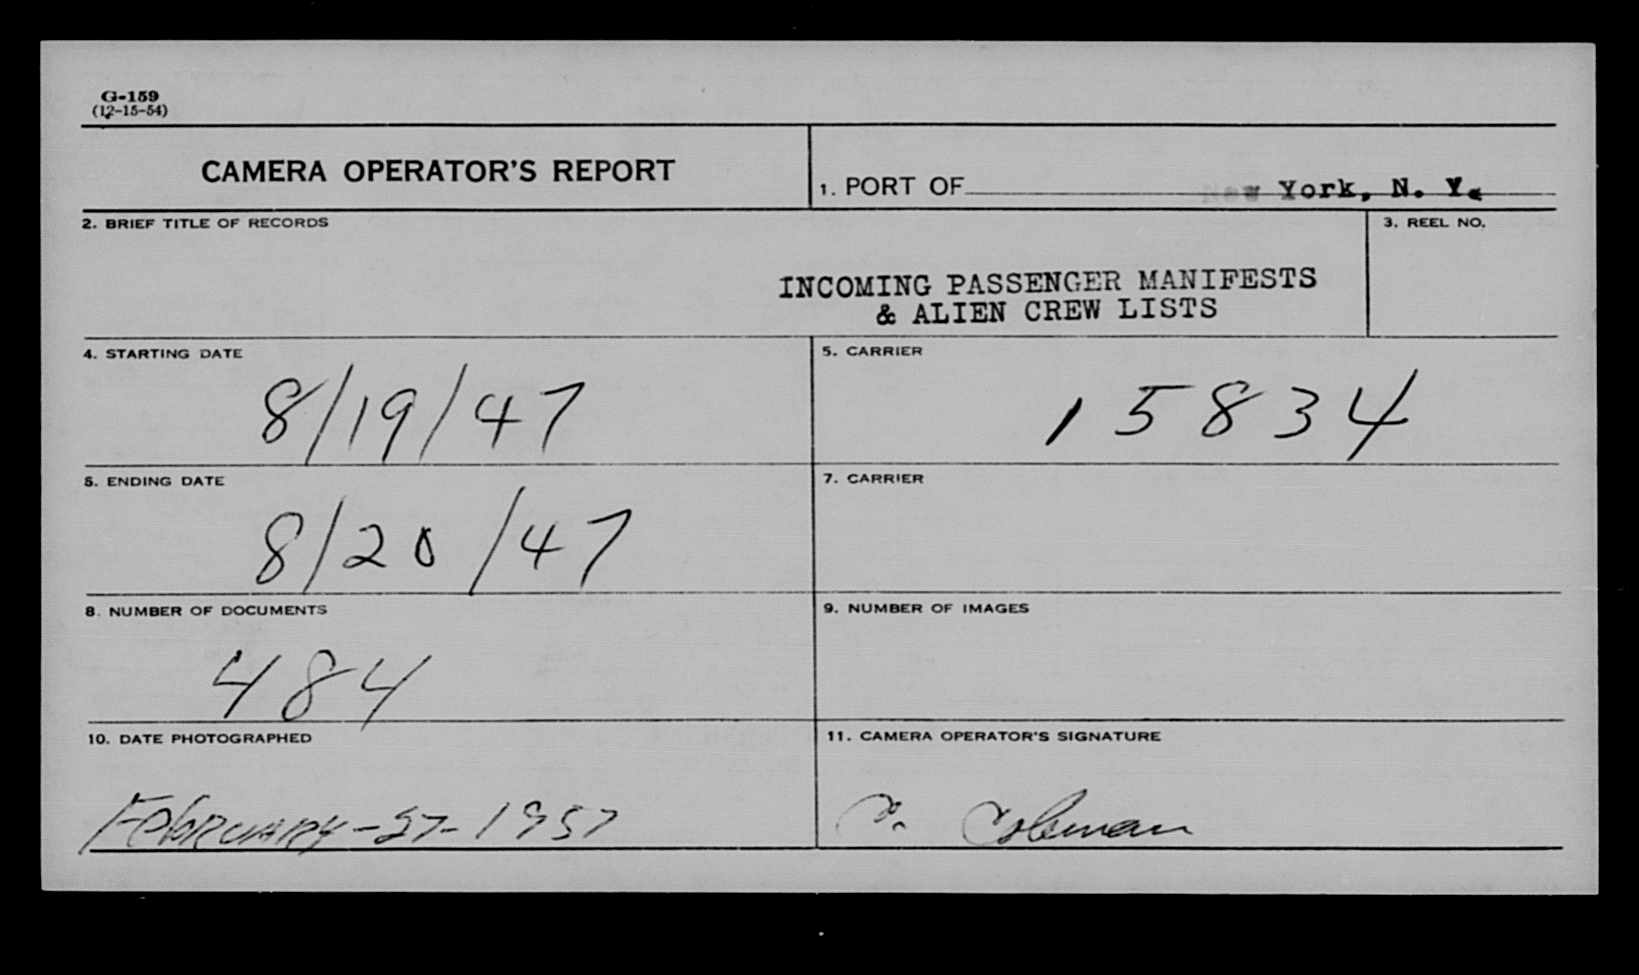 G-159
(12-15-54)
CAMERA OPERATOR'S REPORT
1. PORT OF New York, N. Y.
2. BRIEF TITLE OF RECORDS
3. REEL NO.
INCOMING PASSENGER MANIFESTS
& ALIEN CREW LISTS
4. STARTING DATE
8/19/47
5. CARRIER
15834
5. ENDING DATE
8/20/47
7. CARRIER
8. NUMBER OF DOCUMENTS
484
9. NUMBER OF IMAGES
10. DATE PHOTOGRAPHED
FEBRUARY-27-1957
11. CAMERA OPERATOR'S SIGNATURE
C. Coleman